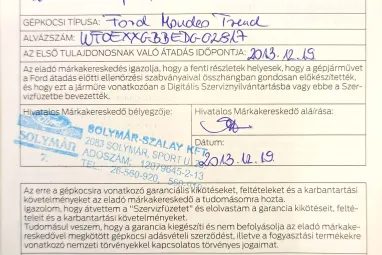 GÉPKOCSI TÍPUSA: Ford Mondeo Trend
ALVÁZSZÁM: WF0EXXGBBEDG02817
AZ ELSŐ TULAJDONOSNAK VALÓ ÁTADÁS IDŐPONTJA: 2013.12.19
Az eladó márkakereskedő igazolja, hogy a fenti részletek helyesek, hogy a gépjárművet
a Ford átadás előtti ellenőrzési szabványaival összhangban gondosan előkészítették,
és hogy ezt a járműre vonatkozóan a Digitális Szerviznyilvántartásba vagy ebbe a Szer-
vizfüzetbe bevezették.
Hivatalos Márkakereskedő bélyegzője:
Hivatalos Márkakereskedő aláírása:
SOLYMÁR
SOLYMÁR-SZALAY KFT.
2083 SOLYMÁR, SPORT U.
ADÓSZÁM: 12979645-2-13
TEL.: 26-560-920
7.
Dátum:
2013.12.19.
Az erre a gépkocsira vonatkozó garanciális kikötéseket, feltételeket és a karbantartási
követelményeket az eladó márkakereskedő a tudomásomra hozta.
Igazolom, hogy átvettem a "Szervizfüzetet" és elolvastam a garancia kikötéseit, felté-
teleit és a karbantartási követelményeket.
Tudomásul veszem, hogy a garancia kiegészíti és nem befolyásolja az eladó márka-
kereskedővel megkötött gépkocsi adásvételi szerződést, illetve a fogyasztási termékekre
vonatkozó nemzeti törvényekkel kapcsolatos törvényes jogaimat.